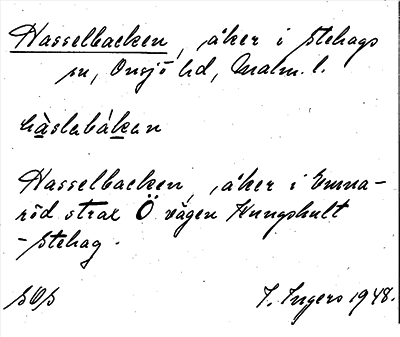 Hasselbacken, åker i Stehags
sn, Onsjö hd, Malm. l.
hàslabákan
Hasselbacken, åker i Emma-
röd strax Ö vägen Hungshult
- Stehag.
SOS
I. Ingers 1948.